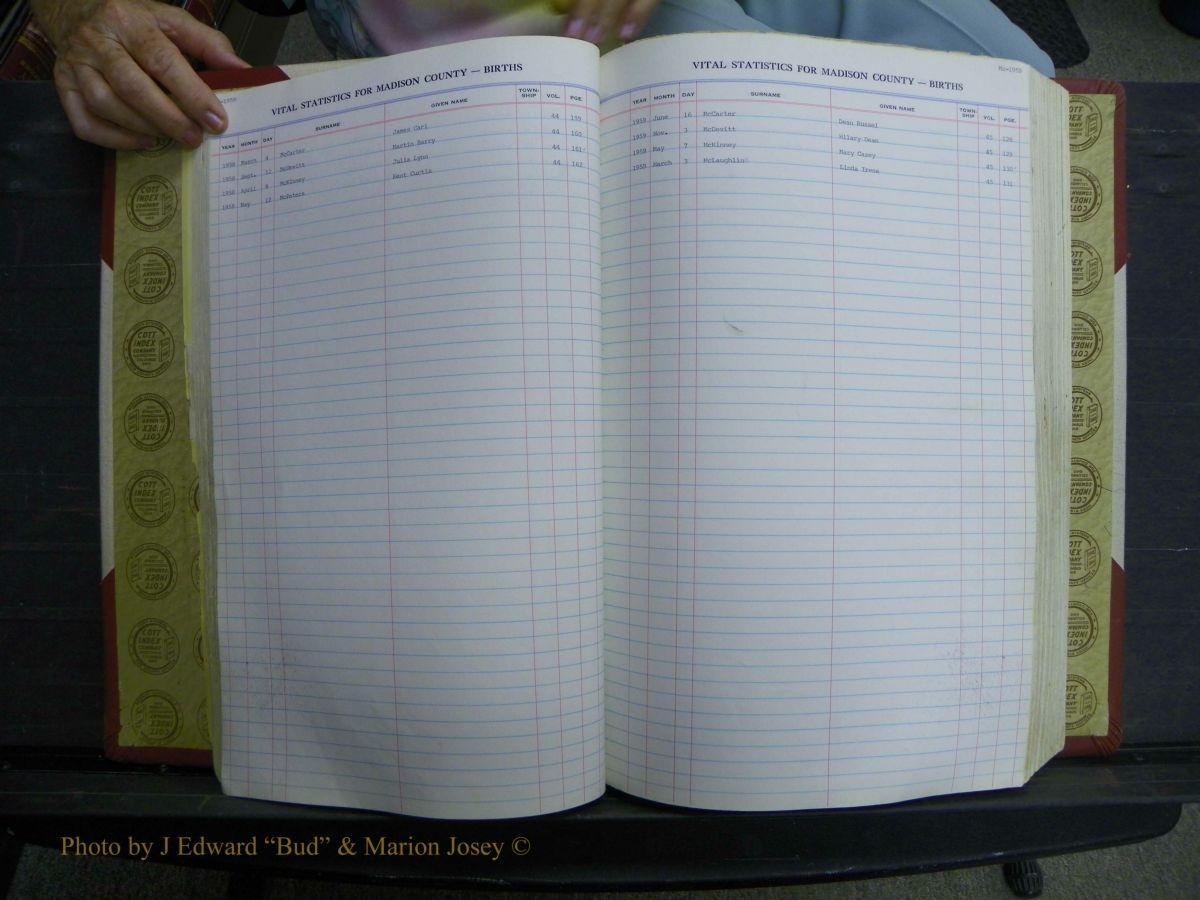 -1958
VITAL STATISTICS FOR MADISON COUNTY — BIRTHS
YEAR MONTH DAY SURNAME GIVEN NAME TOWN-SHIP VOL. PGE.
1958 March 4 McCarter James Carl 44 159
1958 Sept. 12 McDevitt Martin Barry 44 160
1958 April 8 McKinney Julia Lynn 44 161
1958 May 12 McPeters Kent Curtis 44 162
Mc-1959
VITAL STATISTICS FOR MADISON COUNTY — BIRTHS
YEAR MONTH DAY SURNAME GIVEN NAME TOWN-SHIP VOL. PGE.
1959 June 16 McCarter Dean Russel 45 128
1959 Nov. 3 McDevitt Hilary Dean 45 129
1959 May 7 McKinney Mary Casey 45 130
1959 March 3 McLaughlin Linda Irene 45 131
COTT INDEX COMPANY
Photo by J Edward “Bud” & Marion Josey ©